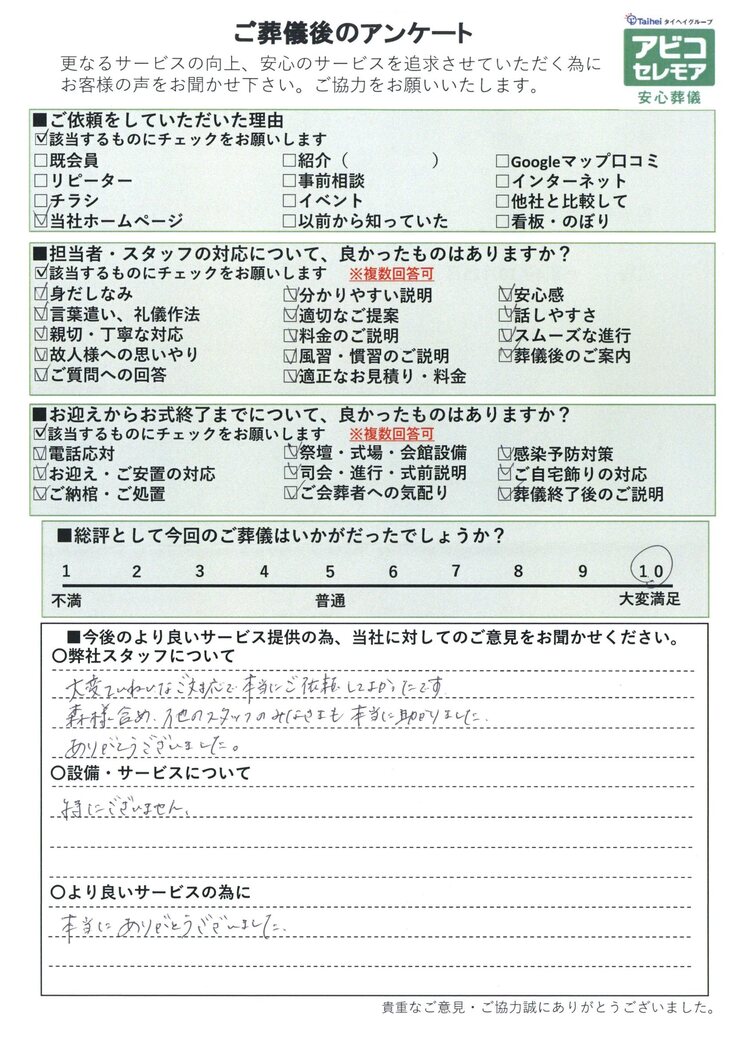 ご葬儀後のアンケート
Taihei タイヘイグループ
アビコ
セレモア
安心葬儀
更なるサービスの向上、安心のサービスを追求させていただく為に
お客様の声をお聞かせ下さい。ご協力をお願いいたします。
■ご依頼をしていただいた理由
☑該当するものにチェックをお願いします
□既会員 □紹介（　　　　　） □Googleマップ口コミ
□リピーター □事前相談 □インターネット
□チラシ □イベント □他社と比較して
☑当社ホームページ □以前から知っていた □看板・のぼり
■担当者・スタッフの対応について、良かったものはありますか？
☑該当するものにチェックをお願いします ※複数回答可
☑身だしなみ ☑分かりやすい説明 ☑安心感
☑言葉遣い、礼儀作法 ☑適切なご提案 ☑話しやすさ
☑親切・丁寧な対応 ☑料金のご説明 ☑スムーズな進行
☑故人様への思いやり ☑風習・慣習のご説明 ☑葬儀後のご案内
☑ご質問への回答 ☑適正なお見積り・料金
■お迎えからお式終了までについて、良かったものはありますか？
☑該当するものにチェックをお願いします ※複数回答可
☑電話応対 ☑祭壇・式場・会館設備 ☑感染予防対策
☑お迎え・ご安置の対応 ☑司会・進行・式前説明 ☑ご自宅飾りの対応
☑ご納棺・ご処置 ☑ご会葬者への気配り ☑葬儀終了後のご説明
■総評として今回のご葬儀はいかがだったでしょうか？
1 2 3 4 5 6 7 8 9 10
不満 普通 大変満足
■今後のより良いサービス提供の為、当社に対してのご意見をお聞かせください。
〇弊社スタッフについて
大変ていねいなご対応で本当にご依頼してよかったです
森様含め、他のスタッフのみなさまも本当に助かりました。
ありがとうございました。
〇設備・サービスについて
特にございません。
〇より良いサービスの為に
本当にありがとうございました。
貴重なご意見・ご協力誠にありがとうございました。